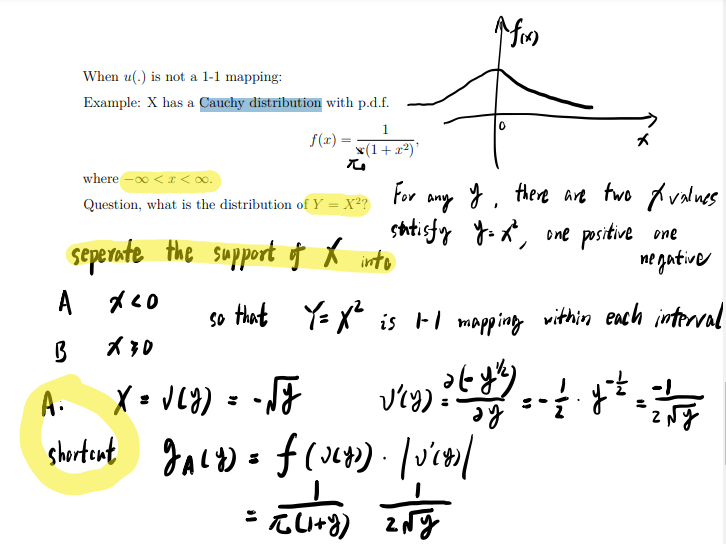 f(x)
When u(.) is not a 1-1 mapping:
Example: X has a Cauchy distribution with p.d.f.
f(x) = 1 / π(1 + x²),
0
x
where −∞ < x < ∞.
Question, what is the distribution of Y = X²?
For any y, there are two x values
satisfy y=x², one positive one
negative
seperate the support of X into
A x<0
B x≥0
so that Y=X² is 1-1 mapping within each interval
A: X = v(y) = -√y v'(y) = ∂(-y^½)/∂y = -½ · y^-½ = -1/2√y
shortcut g_A(y) = f(v(y)) · |v'(y)|
= 1/π(1+y) 1/2√y